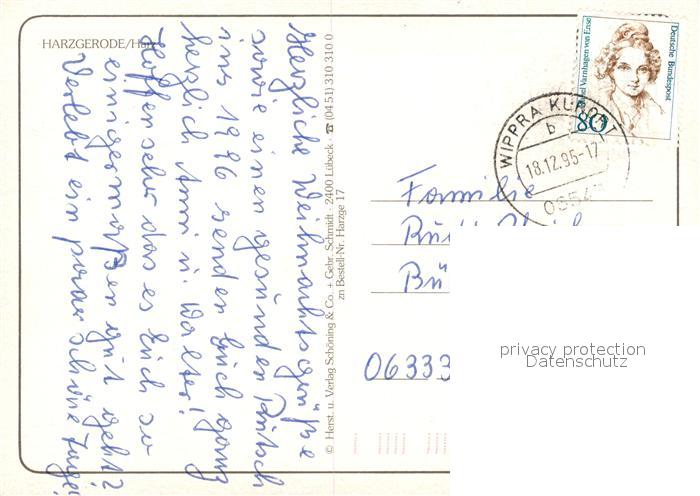 HARZGERODE/Harz
Herzliche Weihnachtsgrüße
sowie einen gesunden Rutsch
ins 1996 senden Euch ganz
herzlich Anni u. Walter!
Hoffen sehr das es Euch so
einigermaßen gut geht?
Verlebt ein paar schöne Tage!
© Herst. u. Verlag Schöning & Co. + Gebr. Schmidt · 2400 Lübeck · ☎ (0451) 310 310 0
zu Bestell-Nr. Harzge 17
Varnhagen von Ense
Deutsche Bundespost
80
WIPPRA KURORT
b
18.12.95-17
Familie
06333
privacy protection
Datenschutz